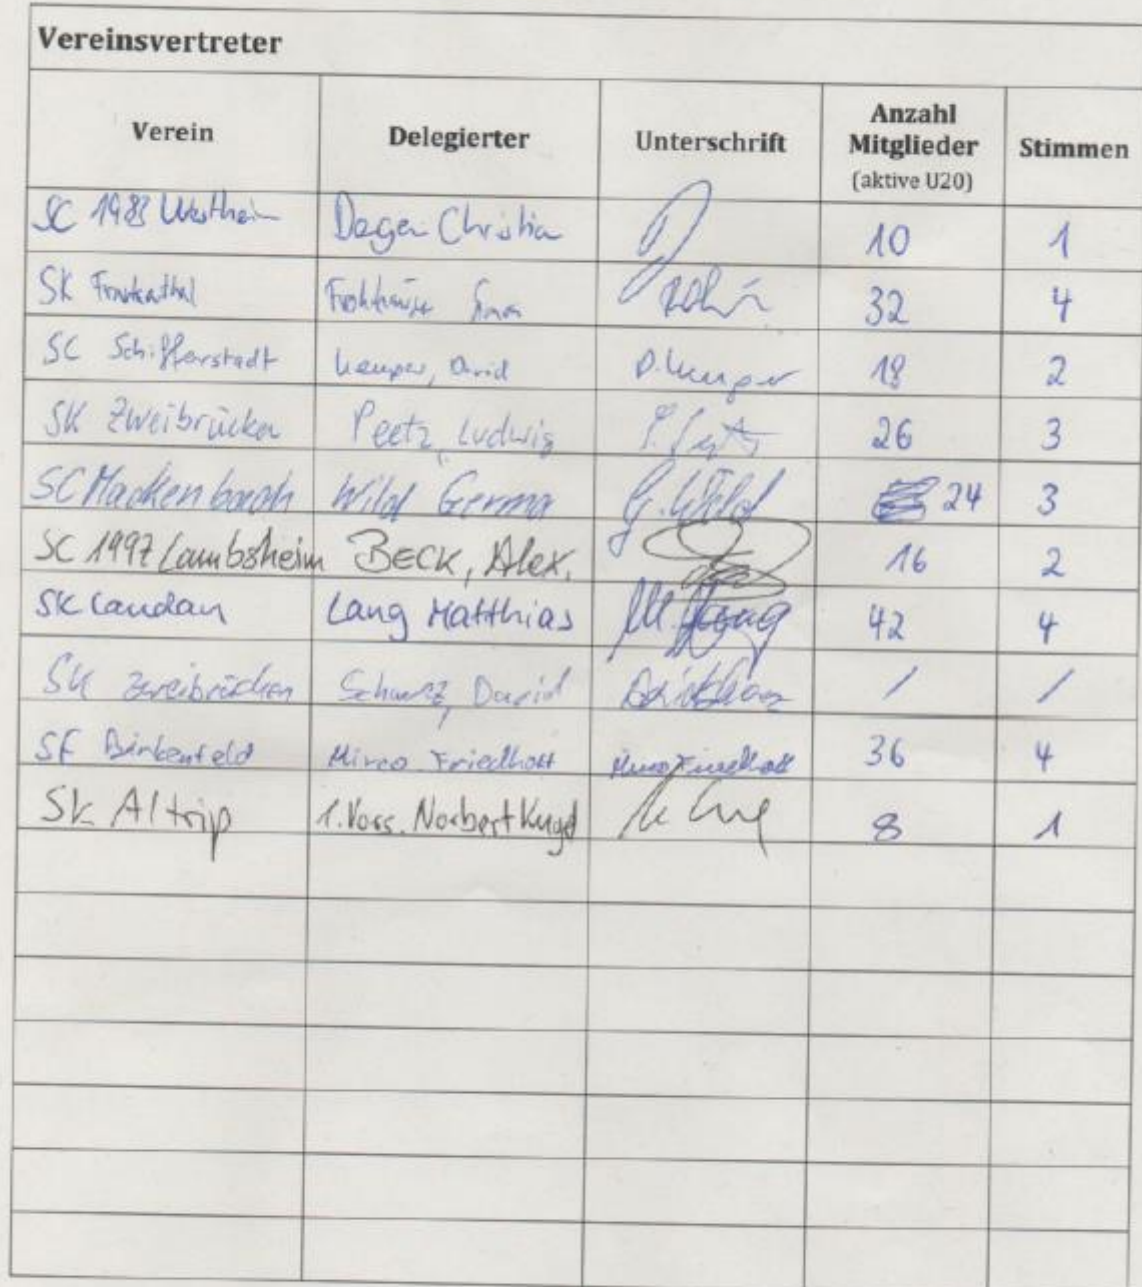 Vereinsvertreter
Verein Delegierter Unterschrift Anzahl Mitglieder (aktive U20) Stimmen
SC 1983 Westheim Christian 10 1
SK Frankenthal 32 4
SC Schifferstadt Kemper, David D. Kemper 18 2
SK Zweibrücken Peetz, Ludwig 26 3
SC Mackenbach Wild Gernna G. Wild 24 3
SC 1997 Lambsheim BECK, Alex. 16 2
SK Landau Lang Matthias M. Lang 42 4
SK Zweibrücken Schwarz, David / /
SF Birkenfeld Mirco Friedhoff Mirco Friedhoff 36 4
SK Altrip 1. Vors. Norbert Kugel 8 1